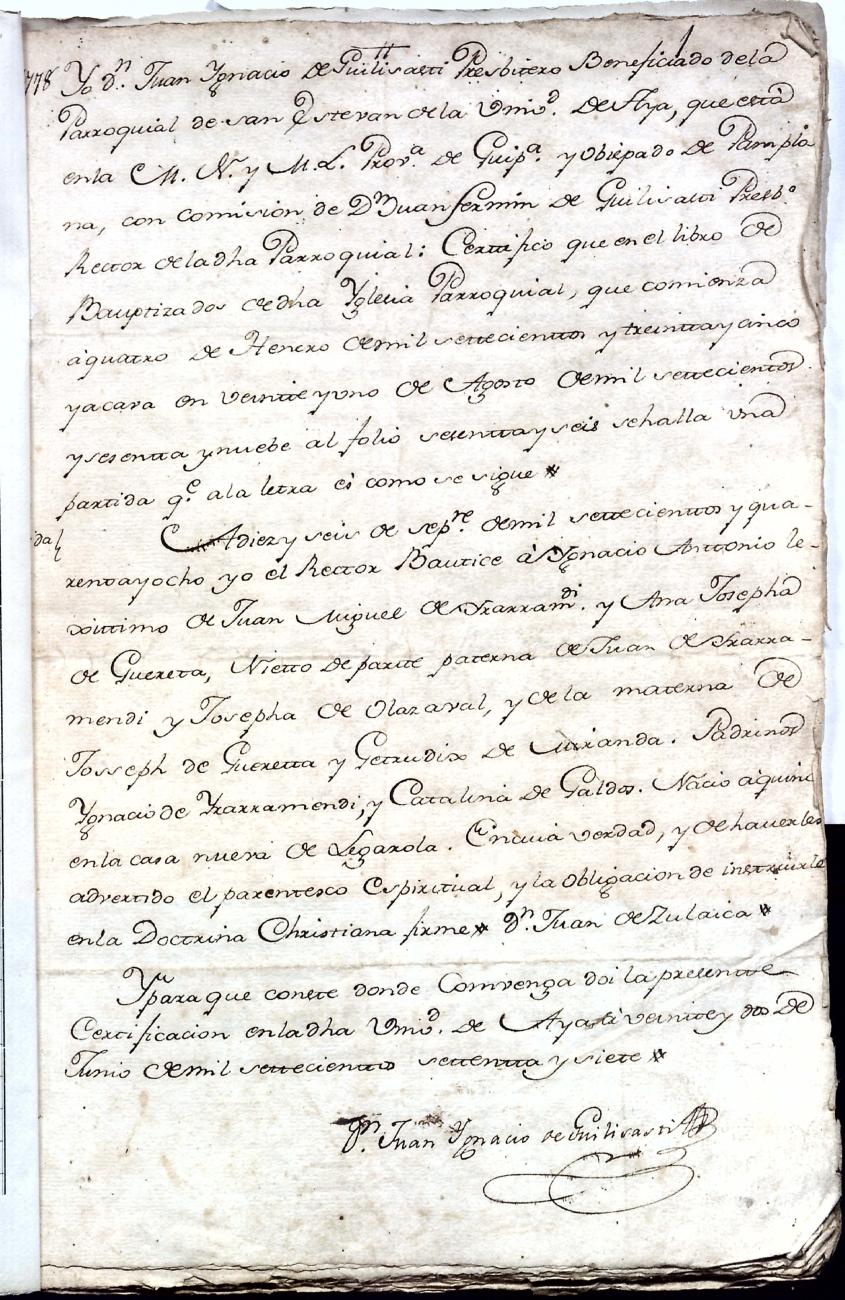 778 Yo dn. Juan Ygnacio de Guilisasti Presbitero Beneficiado dela
Parroquial de san Estevan de la Vniod. de Aya, que està
enla M. N. y M. L. Prova. de Guipa. y Obispado de Pamplo
na, con comision de Dn Juan fermin de Guilisasti Presbo
Rector de la dha Parroquial: Certifico que en el libro de
Bauptizados de dha Yglesia Parroquial, que comienza
à quatro de Henero de mil settecienttos y treintta y cinco
y acava en veintte y vno de Agosto de mil settecienttos
y sesentta y nuebe al folio sesentta y seis se halla vna
partida qe. ala letra es como se sigue
A diez y seis de sepre. de mil settecienttos y qua-
renta y ocho yo el Rector Bautice à Ygnacio Anttonio le-
xittimo de Juan Miguel de Yrarramdi. y Ana Josepha
de Gueretta, Nietto de partte paterna de Juan de Yrarra-
mendi y Josepha de Olazaval, y de la materna de
Josseph de Gueretta y Getrudix de Miranda. Padrinos
Ygnacio de Yrarramendi, y Catalina de Galdos. Nacio à quinc
en la casa nueva de Legarola. En cuia verdad, y de haverles
advertido el parentesco Espiritual, y la obligacion de instruirle
en la Doctrina Christiana firme dn. Juan de Zulaica
Y para que conste donde Comvenga doi la presentte
Certificacion en la dha Vniod. de Aya à veinte y dos de
Junio de mil settecienttos settentta y siete
Dn. Juan Ygnacio de Guilisasti